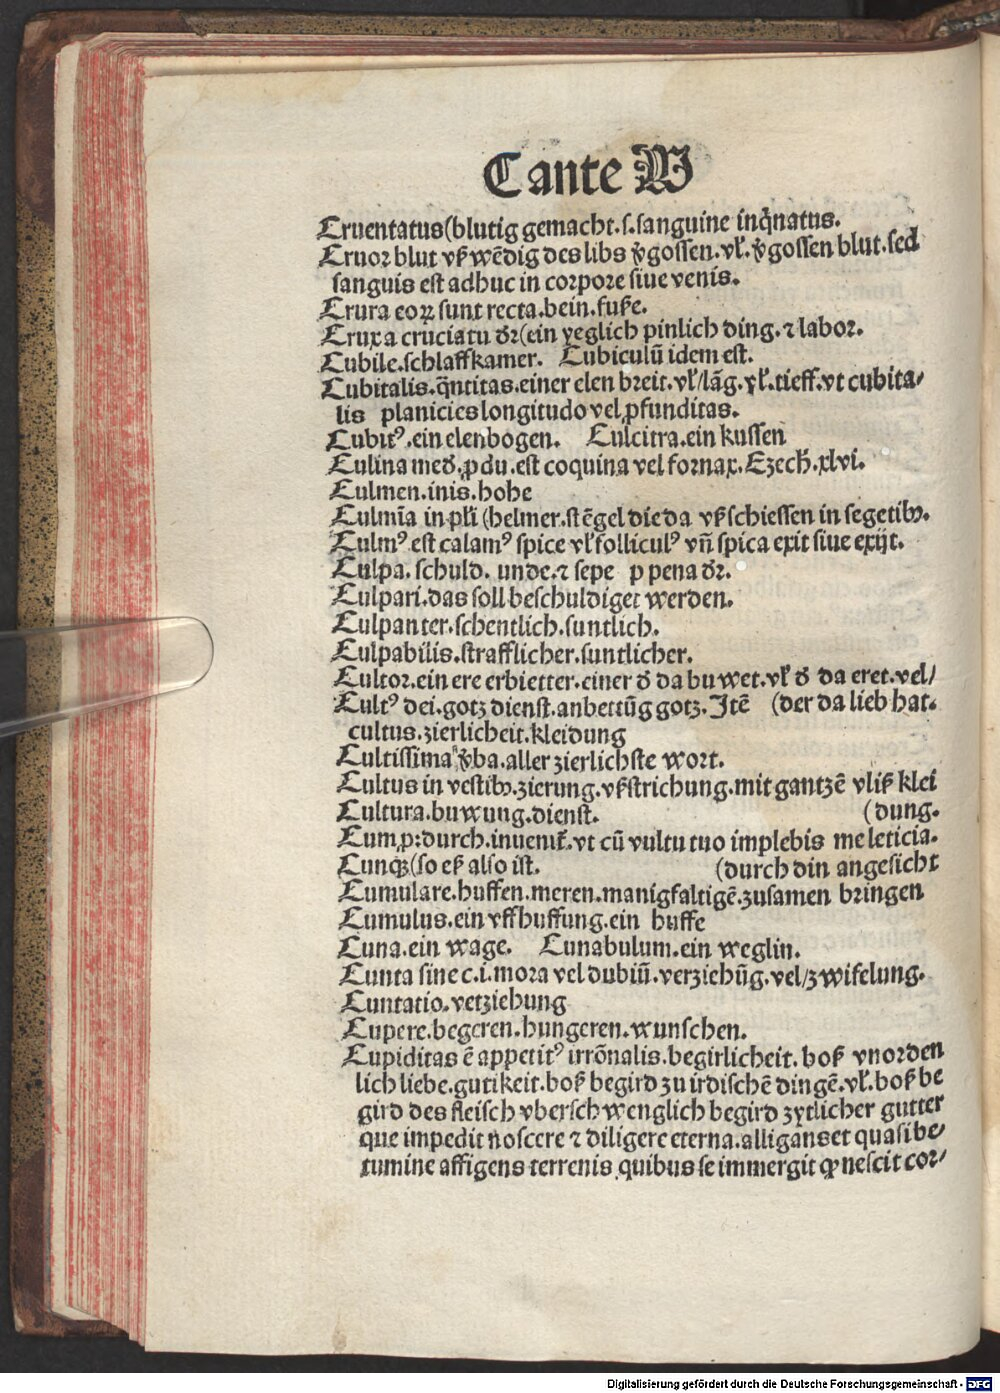 C ante W
Cruentatus(blutig gemacht.s.sanguine inq̃natus.
Cruor blut vß wẽdig des libs v̾gossen.vł.v̾gossen blut.sed
sanguis est adhuc in corpore siue venis.
Crura eoꝝ sunt recta.bein.fuße.
Crux a cruciatu dr̃(ein yeglich pinlich ding.⁊ labor.
Cubile.schlaffkamer. Cubiculũ idem est.
Cubitalis.q̃ntitas.einer elen breit.vł/lãg.vł.tieff.vt cubita/
lis planicies longitudo vel ꝓfunditas.
Cubitꝰ.ein elenbogen. Culcitra.ein kussen
Culina med̾.ꝓdu.est coquina vel fornax.Ezech̾.xlvi.
Culmen.inis.hohe
Culmĩa in płi (helmer.stẽgel die da vß schiessen in segetibꝫ.
Culmꝰ.est calamꝰ spice vł folliculꝰ vñ spica exit siue exijt.
Culpa.schuld. unde.⁊ sepe p pena dr̃.
Culpari.das soll beschuldiget werden.
Culpanter.schentlich.suntlich.
Culpabilis.strafflicher.suntlicher.
Cultor.ein ere erbietter.einer d̾ da buwet.vł d̾ da eret.vel/
Cultꝰ dei.gotz dienst.anbettũg gotz.Itẽ (der da lieb hat.
cultus.zierlicheit.kleidung
Cultissima v̾ba.aller zierlichste wort.
Cultus in vestibꝫ.zierung.vßstrichung.mit gantzẽ vliß klei
Cultura.buwung.dienst. (dung.
Cum,p:durch.inuenit̃.vt cũ vultu tuo implebis me leticia.
Cunqꝫ(so eß also ist. (durch din angesicht
Cumulare.huffen.meren.manigfaltigẽ.zusamen bringen
Cumulus.ein vffhuffung.ein huffe
Cuna.ein wage. Cunabulum.ein weglin.
Cunta sine c.i.mora vel dubiũ.verziehũg.vel/zwifelung.
Cuntatio.vetziehung
Cupere.begeren.hungeren.wunschen.
Cupiditas ẽ appetitꝰ irrõnalis.begirlicheit.boß vnorden
lich liebe.gutikeit.boß begird zu irdischẽ dingẽ.vł.boß be
gird des fleisch vberschwenglich begird zytlicher gutter
que impedit noscere ⁊ diligere eterna.alligans et quasi be/
tumine affigens terrenis quibus se immergit ꝙ nescit cor/
Digitalisierung gefördert durch die Deutsche Forschungsgemeinschaft - DFG